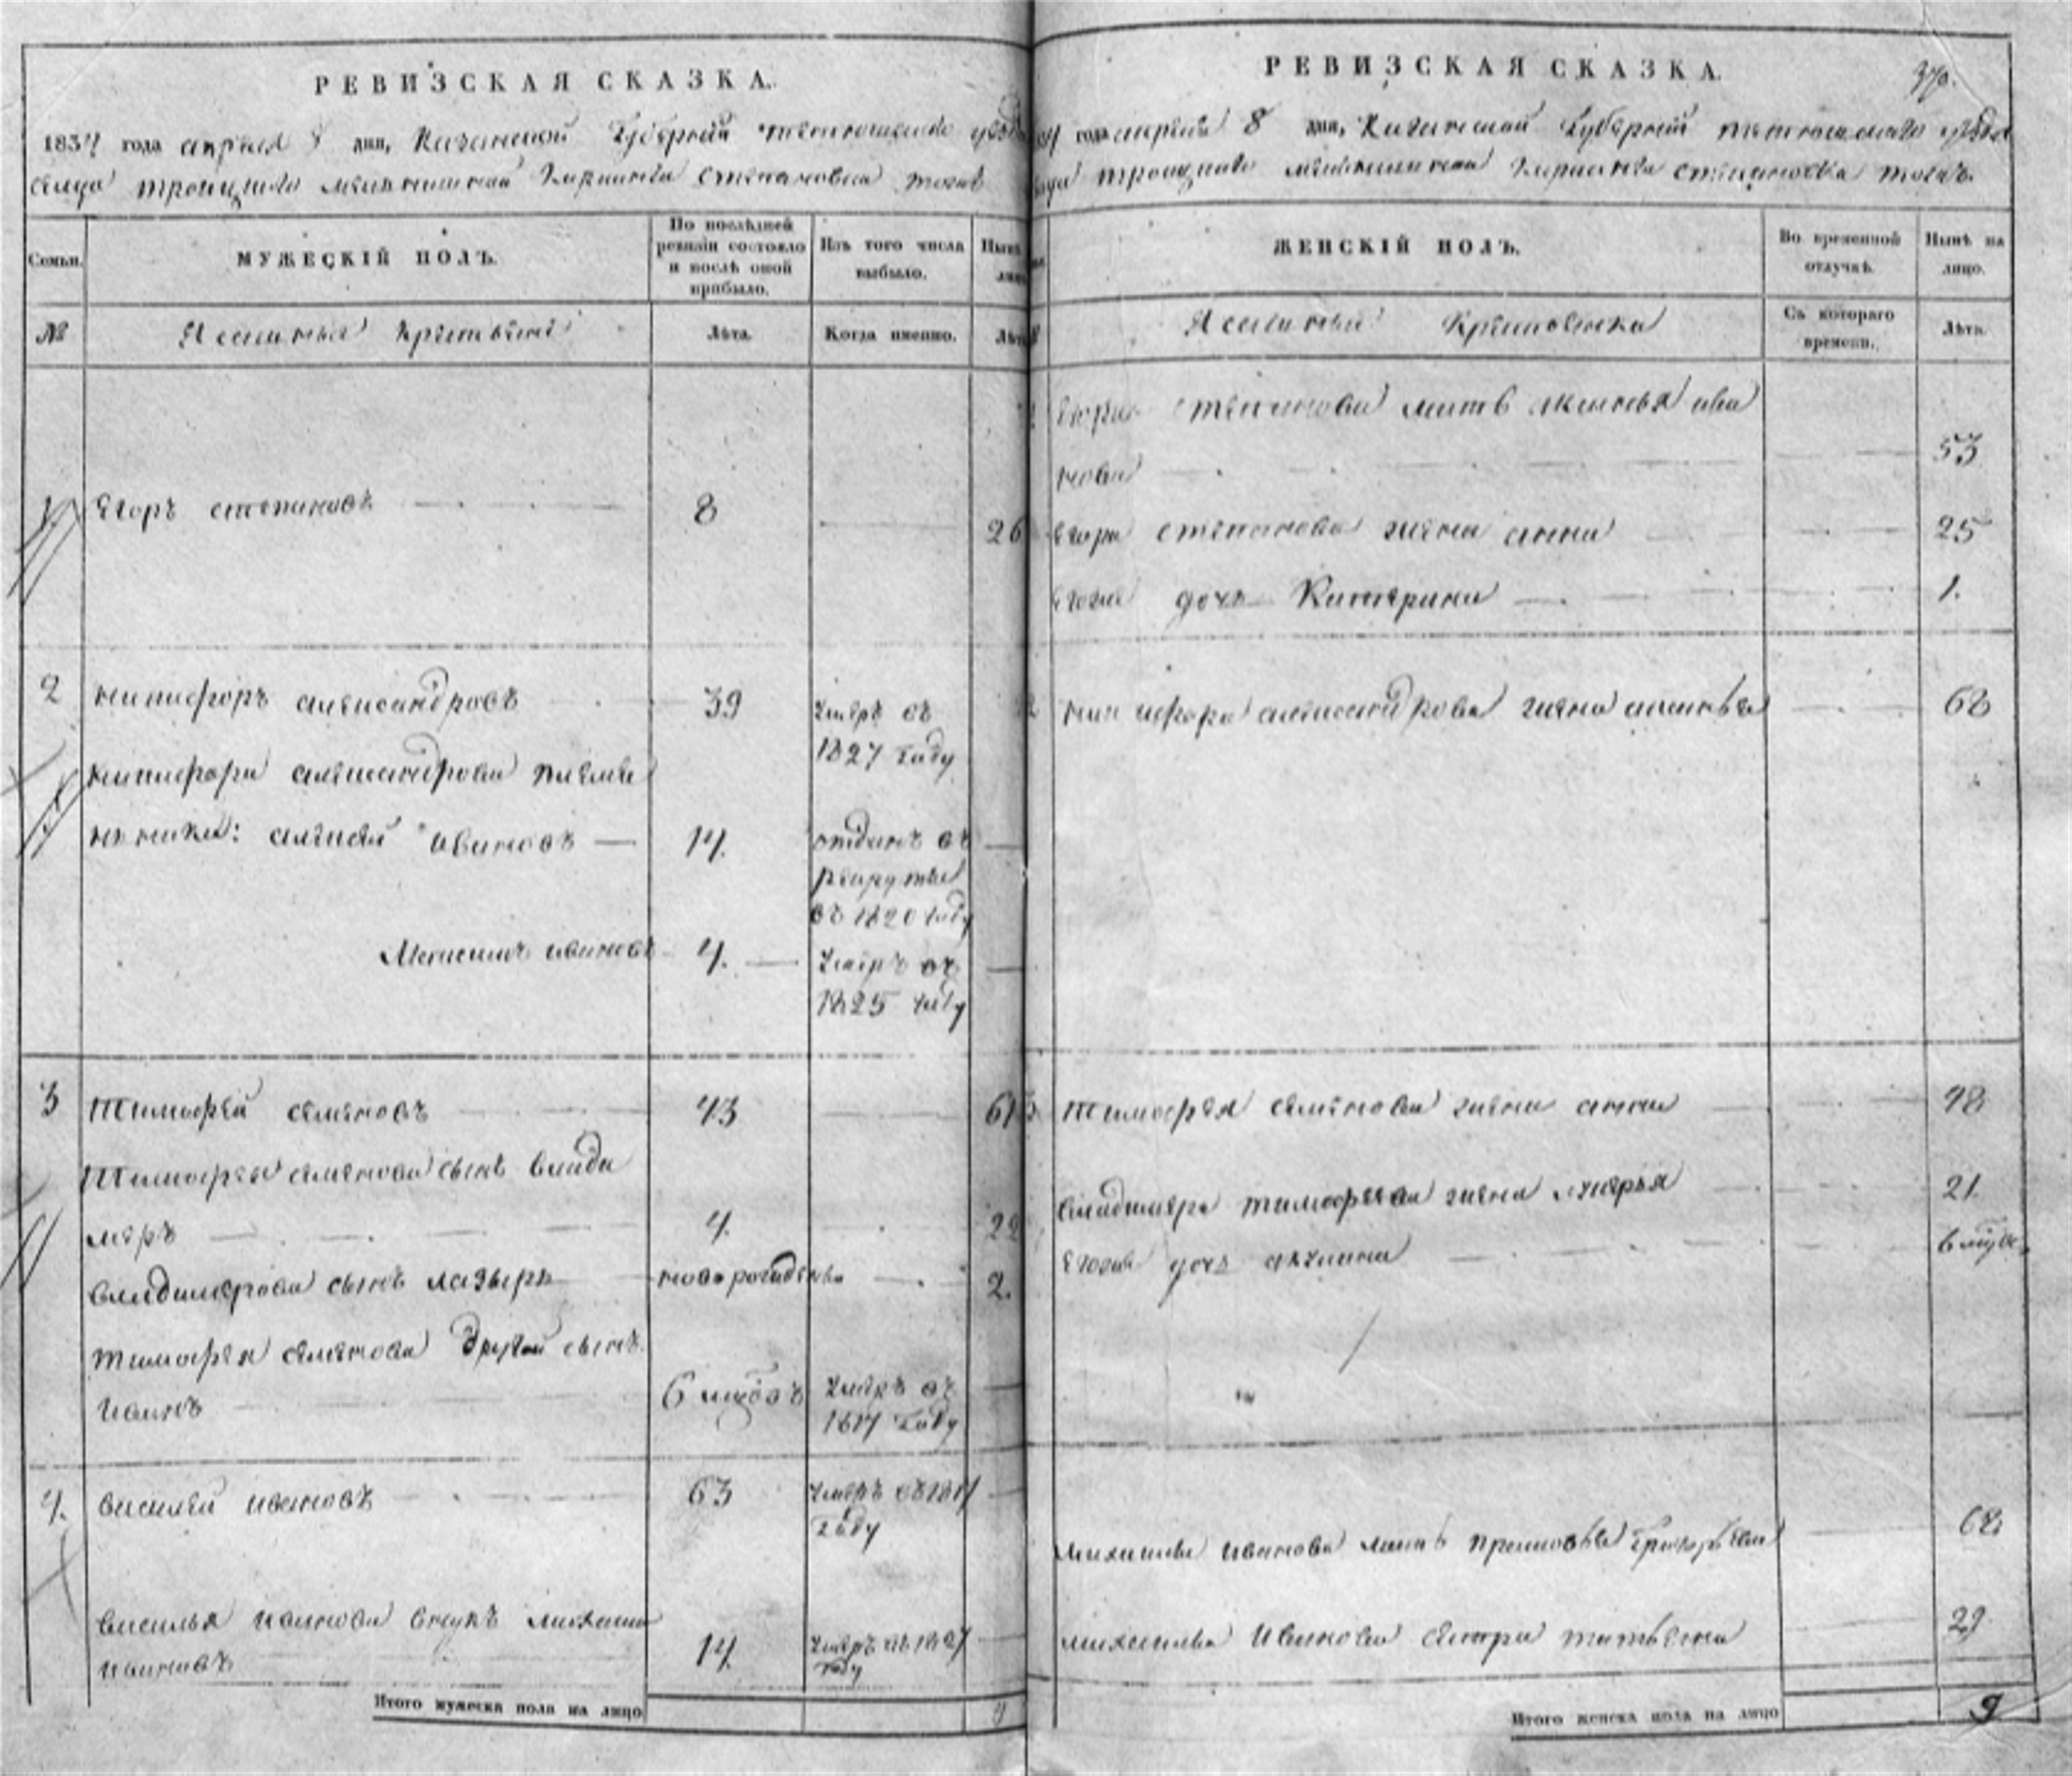 РЕВИЗСКАЯ СКАЗКА.
1834 года апреля 8 дня, Казанской Губернии уезда
сельца троицкаго степановка тожъ
Семьи.
МУЖЕСКІЙ ПОЛЪ.
По послѣдней ревизіи состояло и послѣ оной прибыло.
Изъ того числа выбыло.
Нынѣ лицо
№
Лѣта.
Когда именно.
Лѣта
1
Егоръ степановъ
8
26
2
никифоръ александровъ
39
умеръ въ
1827 году
никифора александрова племян
ники: алексей ивановъ
14.
отданъ въ
рекруты
въ 1820 году
Максимъ ивановъ
4.
умеръ въ
1825 году
3
Тимофей семеновъ
43
61
Тимофея семенова сынъ влади
меръ
4.
22
владимерова сынъ лазырь
новорожденъ
2.
тимофея семенова другой сынъ
иванъ
6 
умеръ въ
году
4.
василей ивановъ
63
умеръ въ
году
василья иванова внукъ михаила
ивановъ
14.
умеръ въ 1827
году
Итого мужеска пола на лицо
РЕВИЗСКАЯ СКАЗКА.
370.
года апреля 8 дня, Казанской Губернии уезда
троицкаго степановка тожъ
ЖЕНСКІЙ ПОЛЪ.
Во временной отлучкѣ.
Нынѣ на лицо.
Съ котораго времени.
Лѣта.
Егора степанова мать аксинья ива
нова
53
Егора степанова жена анна
25
Егоже дочь Катерина
1.
2
никифора александрова жена аксинья
68
Тимофея семенова жена анна
48
владимера тимофеева жена лукерья
21.
Егоже дочь
6
михаилы иванова мать прасковья григорьева
68
михаилы Иванова сестра татьяна
29.
Итого женска пола на лицо
9